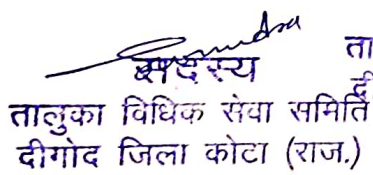 सदस्य ता
दी
तालुका विधिक सेवा समिति
दीगोद जिला कोटा (राज.)